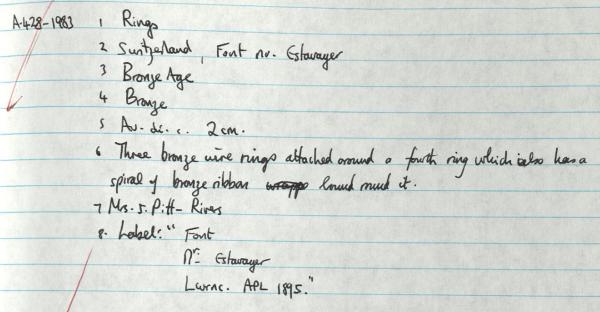 A.428-1983 1 Rings
2 Switzerland, Font nr. Estavayer
3 Bronze Age
4 Bronze
5 Av. di. c. 2cm.
6 Three bronze wire rings attached around a fourth ring which is also has a
spiral of bronze ribbon wrapp bound round it.
7 Mrs. S. Pitt-Rivers
8. Label: "Font
Nr. Estavayer
Lwrnc. APL 1895."